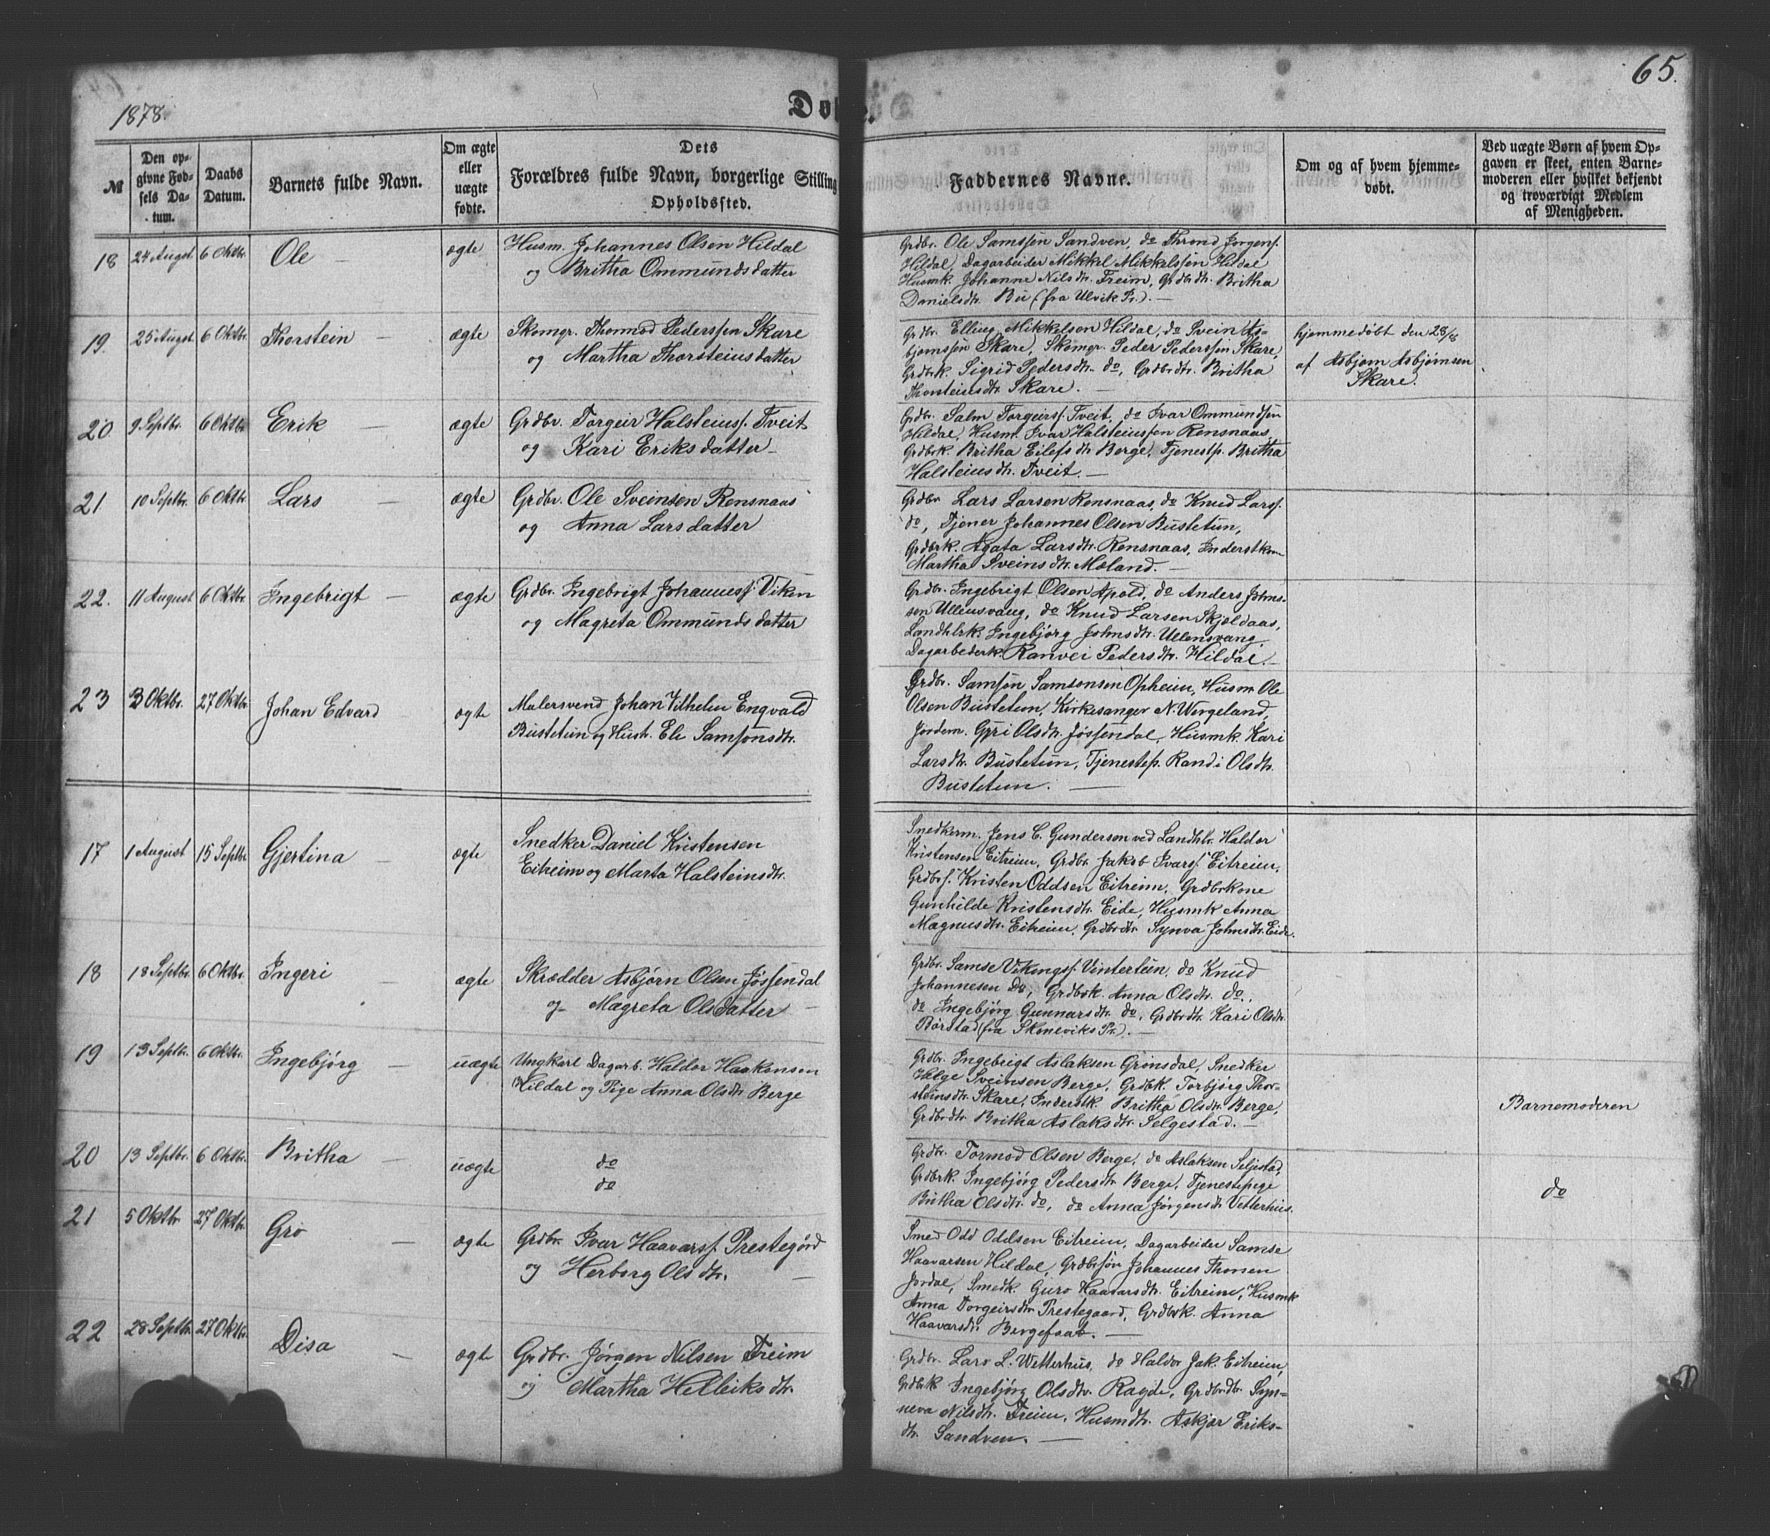 65.
1878.
Døbte.
№
Den op-
givne Fød-
sels Da-
tum.
Daabs
Datum.
Barnets fulde Navn.
Om ægte
eller
uægte
fødte.
Dets
Forældres fulde Navn, borgerlige Stilling
Opholdssted.
Faddernes Navne.
Om og af hvem hjemme-
døbt.
Ved uægte Børn af hvem Op-
gaven er skeet, enten Barne-
moderen eller hvilket bekjendt
og troværdigt Medlem
af Menigheden.
18 24 Augst 6 Oktbr. Ole ægte
Husm. Johannes Olsen Hildal
og Britha Ommundsdatter
Grdbr. Ole Samssøn Sandven, do Thrond Jørgens.
Hildal, Dagarbeider Mikkel Mikkelssøn Hildal
Husmk. Johanne Nilsdtr. Freim, Grdbrdtr. Britha
Danielsdtr. Bu (fra Ulvik Pr.).
19. 25 Augst 6 Oktbr. Thorstein ægte
Skomgr. Thormod Pederssøn Skare
og Martha Thorsteinsdatter
Grdbr. Elling Mikkelson Hildal, do Svein As-
bjørnssøn Skare, Skomgr. Peder Pederssøn Skare,
Grdbrk. Sigrid Pedersdtr. do, Grdbrdtr. Britha
Thorsteinsdtr. Skare.
hjemmedøbt den 28/8
af Asbjørn Asbjørnsen
Skare.
20 9 Septbr. 6 Oktbr. Erik ægte
Grdbr. Torgeir Halsteinss. Tveit
og Kari Eriksdatter
Grdbr. Salm Torgeirs. Tveit, do Ivar Ommundsøn
Hildal, Husm. Ivar Halsteinssøn Rensnaas,
Grdbrk. Britha Eilefsdtr. Berge, Tjenestp. Britha
Halsteinsdtr. Tveit.
21 10 Septbr. 6 Oktbr. Lars ægte
Grdbr. Ole Sveinsen Rensnaas
og Anna Larsdatter
Grdbr. Lars Larsen Rensnaas, do Knud Lars.
do, Tjener Johannes Olsen Bustetun,
Grdbrk. Agata Larsdtr. Rensnaas, Inderstkone
Martha Sveinsdtr. Mæland.
22. 11 August 6 Oktbr. Ingebrigt ægte
Grdbr. Ingebrigt Johanness. Viken
og Magreta Ommundsdatter
Grdbr. Ingebrigt Olsen Apold, do Anders Johns-
sen Ullensvang, do Knud Larsen Skjeldaas,
Landhlrk. Ingebjørg Johnsdtr. Ullensvang
Dagarbederk. Ranvei Pedersdtr. Hildal.
23 3 Oktbr. 27 Oktbr. Johan Edvard ægte
Malersvend Johan Vilhelm Engvald
Bustetun og Hust. Eli Samsonsdtr.
Grdbr. Samson Samsonsen Opheim, Husm. Ole
Olsen Bustetun, Kirkesanger N. Wergeland,
Jordem. Gyri Olsdtr. Jøssendal, Husmk. Kari
Larsdtr. Bustetun, Tjenestep. Randi Olsdtr.
Bustetun.
17 1 August 15 Septbr. Gjertina ægte
Snedker Daniel Kristensen
Eitreim og Marta Halsteinsdtr.
Snedkerm. Jens C. Gunderson ved Landhlr. Haldor
Kristensen Eitreim, Grdbr. Jakob Ivars. Eitreim,
Grdbrs. Kristen Oddsen Eitreim, Grdbrkone
Gunhilde Kristensdtr. Eide, Husmk. Anna
Magnusdtr. Eitreim, Grdbrdtr. Synva Johnsdtr. Eide.
18 18 Septbr. 6 Oktbr. Ingeri ægte
Skrædder Asbjørn Olsen Jøssendal
og Magreta Olsdatter
Grdbr. Samse Vikings. Vintertun, do Knud
Johannesen Do, Grdbrk. Anna Olsdtr. do,
do Ingebjørg Gunnarsdtr. do, Grdbrdtr. Kari Olsdtr.
Børstad (fra Skoneviks Pr.).
19 13 Septbr. 6 Oktbr. Ingebjørg uægte
Ungkarl Dagarb. Haldor Haakonsen
Hildal og Pige Anna Olsdtr. Berge
Grdbr. Ingebrigt Aslaksen Grønsdal, Snedker
Helge Sveinsen Berge, Grdbk. Torbjørg Thor-
steinsdtr. Skare, Inderstk. Britha Olsdtr. Berge,
Grdbrdtr. Britha Aslaksdtr. Selgestad.
Barnemoderen
20 13 Septbr. 6 Oktbr. Britha uægte
do
do
Grdbr. Tormod Olsen Berge, do Aslaksen Seljestad,
Grdbrk. Ingebjørg Pedersdtr. Berge, Tjenestepige
Britha Olsdtr. do, do Anna Jørgensdtr. Vetterhus.
do
21 5 Oktbr. 27 Oktbr. Gro ægte
Grdbr. Ivar Haavars. Prestegård
og Herborg Olsdtr.
Smed Odd Oddsen Eitreim, Dagarbeider Samse
Haavarsen Hildal, Grdbrsøn Johannes Thonen
Jordal, Smedk. Guro Haavarsdtr. Eitreim, Husmk
Anna Torgeirsdtr. Prestegaard, Grdbrk. Anna
Haavarsdtr. Bergefaat.
22 28 Septbr. 27 Oktbr. Disa ægte
Grdbr. Jørgen Nilsen Freim
og Martha Helleiksdtr.
Grdbr. Lars L. Wetterhus, do Haldor Jak. Eitreim,
Grdbrk Ingebjørg Olsdtr. Ragde, Grdbrdtr. Syn-
neva Nilsdtr. Freim, Husmdtr. Askjær Eriks-
dtr. Sandven.